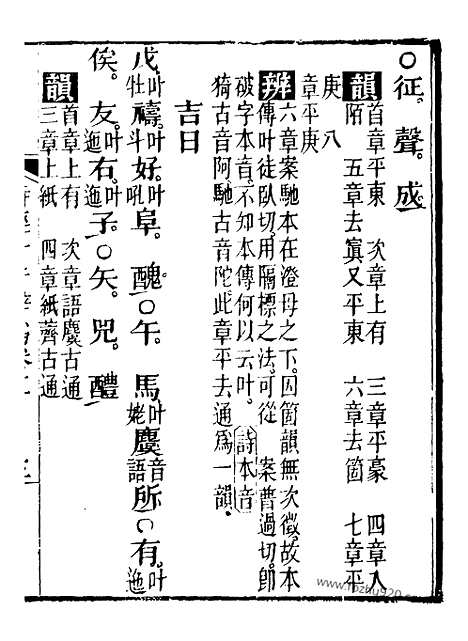 ○征。聲。成。
韻 首章平東 次章上有 三章平豪 四章入
陌 五章去寘又平東 六章去箇 七章平
庚 八
章平庚
辨 六章案馳本在澄母之下因箇韻無次徵故本
傳叶徒臥切用隔標之法可從 案普過切即
破字本音不知本傳何以云叶 詩本音
猗古音阿馳古音陀此章平去通爲一韻
吉日
戊。叶牡 禱。叶斗 好。叶吼 阜。醜。○午。馬叶姥 麌音語 所。○有。叶
俟。友。叶 右。叶 子。○矢。兕。醴
韻 首章上有 次章語麌古通
三章上紙 四章紙薺古通